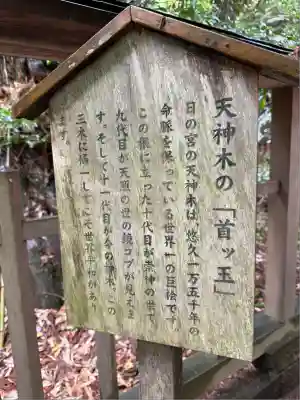 天神木の「首ッ玉」
日の宮の天神木は、悠久一万五千年の
命脈を保っている世界一の巨桧です
この根に立った十代目が崇神の世で
九代目が天照の世の親コブが見えま
す。そして十一代目が今の神木、この
三本に福一しでこそ世界平和があり
ます